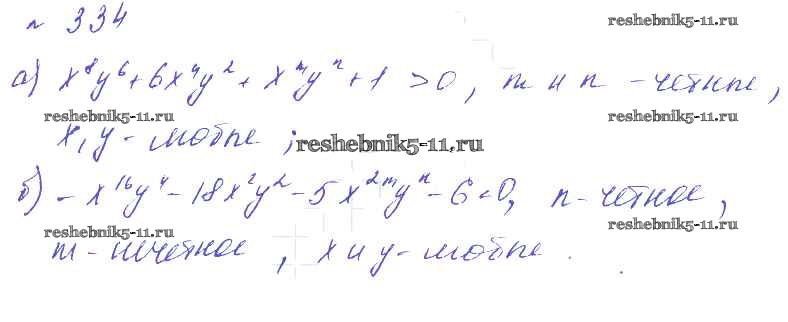 № 334
reshebnik5-11.ru
а) x⁸y⁶ + 6x⁴y² + xᵐyⁿ + 1 > 0, m и n - четные,
reshebnik5-11.ru
reshebnik5-11.ru
x, y - любые;
reshebnik5-11.ru
б) - x¹⁶y⁴ - 18x²y² - 5x²ᵐyⁿ - 6 < 0, n - четное,
reshebnik5-11.ru
reshebnik5-11.ru
m - нечетное, x и y - любые.